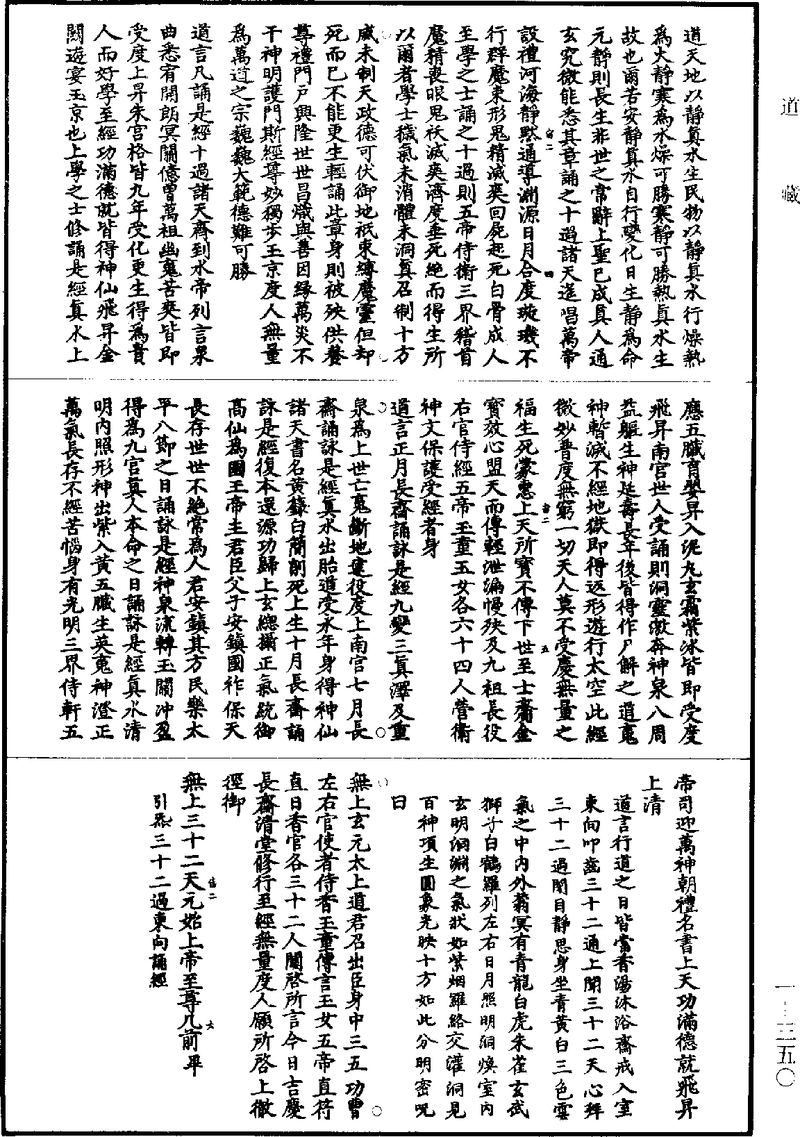 道藏
道天地以靜真水生民物以靜真水行燥熱
為大靜寒為水燥可勝寒靜可勝熱真水生
故也爾苦安靜真水自行變化日生靜為命
元靜則長生非世之常辭上聖已成真人通
玄究微能悉其章誦之十過諸天遙唱萬帝
設禮河海靜默通導淵源日月合度璇璣不
行群魔束形鬼精滅爽回屍起死白骨成人
至學之士誦之十過則五帝侍衛三界稽首
魔精喪眼鬼祅滅爽濟度垂死絕而得生所
以爾者學士穢氣未消體未洞真召制十方
威未制天政德可伏御地祇束縛魔靈但却
死而已不能更生輕誦此章身則被殃供養
尊禮門戶興隆世世昌熾與善因緣萬災不
干神明護門斯經尊妙獨步玉京度人無量
為萬道之宗巍巍大範德難可勝
道言凡誦是經十過諸天齊到水帝列言泉
曲悉宥開朗冥關億曾萬祖幽鬼苦爽皆即
受度上昇朱宮格皆九年受化更生得為貴
人而好學至經功滿德就皆得神仙飛昇金
闕遊宴玉京也上學之士修誦是經真水上
應五臟育嬰昇入泥丸玄霜紫冰皆即受度
飛昇南宮世人受誦則洞靈激奔神泉八周
益軀生神延壽長年後皆得作尸解之道鬼
神暫滅不經地獄即得返形遊行太空此經
微妙普度無窮一切天人莫不受慶無量之
福生死蒙惠上天所寶不傳下世至士齎金
寶效心盟天而傳輕泄漏慢殃及九祖長役
右官侍經五帝玉童玉女各六十四人營衛
神文保護受經者身
道言正月長齋誦詠是經九變三真澤及重
泉為上世亡鬼斷地逮役度上南宮七月長
齋誦詠是經真水出胎道受永年身得神仙
諸天書名黃籙白簡削死上生十月長齋誦
詠是經復本還源功歸上玄總攝正氣統御
高仙為國王帝主君臣父子安鎮國祚保天
長存世世不絕常為人君安鎮其方民樂太
平八節之日誦詠是經神泉流轉玉關沖盈
得為九宮真人本命之日誦詠是經真水清
明內照形神出紫入黃五臟生英鬼神澄正
萬氣長存不經苦惱身有光明三界侍軒五
帝司迎萬神朝禮名書上天功滿德就飛昇
上清
道言行道之日皆當香湯沐浴齋戒入室
東向叩齒三十二通上聞三十二天心拜
三十二過閉目靜思身坐青黃白三色雲
氣之中內外蓊冥有青龍白虎朱雀玄武
獅子白鶴羅列左右日月照明洞煥室內
玄明洞淵之氣狀如紫烟羅絡交灌洞見
百神項生圓象光映十方如此分明密呪
曰
無上玄元太上道君召出臣身中三五功曹
左右官使者侍香玉童傳言玉女五帝直符
直日香官各三十二人關啓所言今日吉慶
長齋清堂修行至經無量度人願所啓上徹
徑御
無上三十二天元始上帝至尊几前畢
引炁三十二過東向誦經
一-三五〇